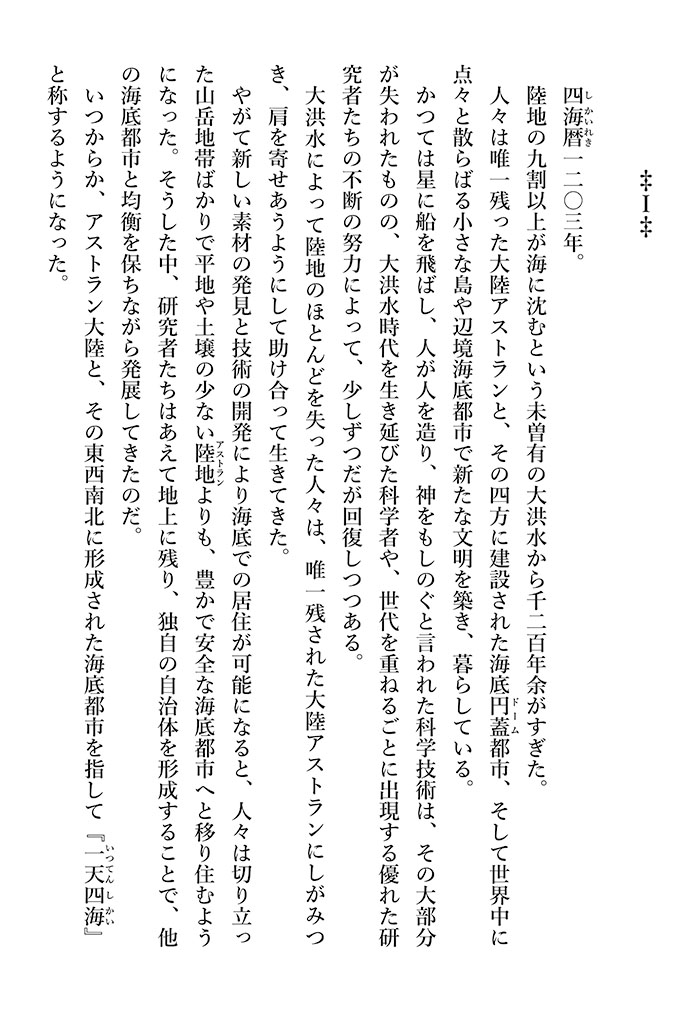 ‡I‡
四海暦一二〇三年。
陸地の九割以上が海に沈むという未曽有の大洪水から千二百年余がすぎた。
人々は唯一残った大陸アストランと、その四方に建設された海底円蓋都市、そして世界中に
点々と散らばる小さな島や辺境海底都市で新たな文明を築き、暮らしている。
かつては星に船を飛ばし、人が人を造り、神をもしのぐと言われた科学技術は、その大部分
が失われたものの、大洪水時代を生き延びた科学者や、世代を重ねるごとに出現する優れた研
究者たちの不断の努力によって、少しずつだが回復しつつある。
大洪水によって陸地のほとんどを失った人々は、唯一残された大陸アストランにしがみつ
き、肩を寄せあうようにして助け合って生きてきた。
やがて新しい素材の発見と技術の開発により海底での居住が可能になると、人々は切り立っ
た山岳地帯ばかりで平地や土壌の少ない陸地よりも、豊かで安全な海底都市へと移り住むよう
になった。そうした中、研究者たちはあえて地上に残り、独自の自治体を形成することで、他
の海底都市と均衡を保ちながら発展してきたのだ。
いつからか、アストラン大陸と、その東西南北に形成された海底都市を指して『一天四海』
と称するようになった。
しかいれき
ドーム
アストラン
いつてんしかい